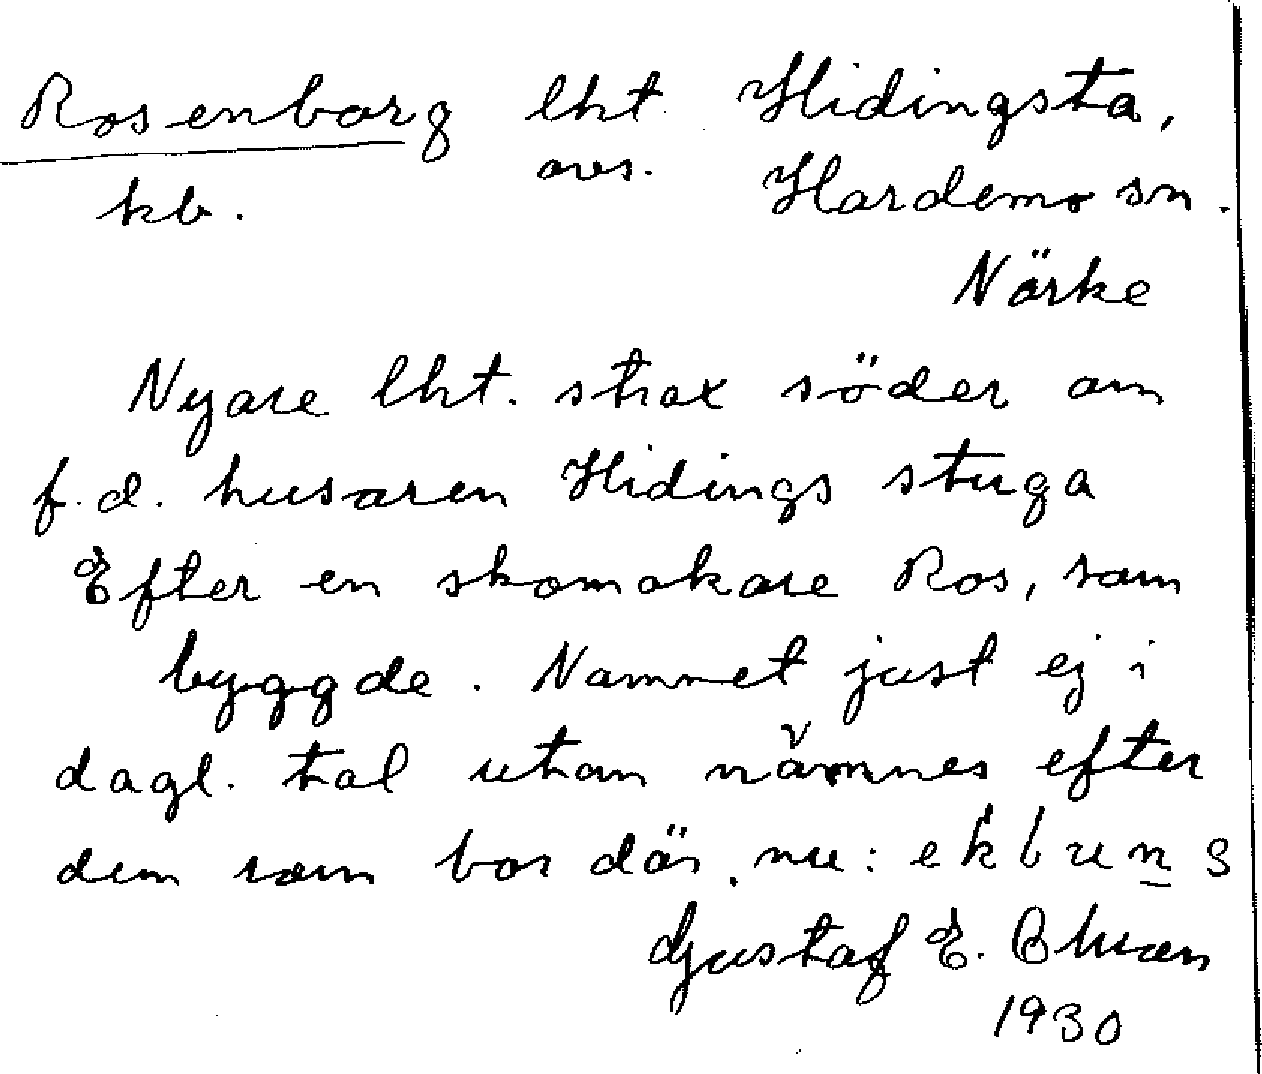 Rosenborg lht Hidingsta,
kb. avs. Hardemo sn.
Närke
Nyare lht. strax söder om
f.d. husaren Hidings stuga
Efter en skomakare Ros, som
byggde. Namnet just ej i
dagl. tal utan nämnes efter
dem som bor där. nu: ekbuns
Gustaf E. Bluan
1930